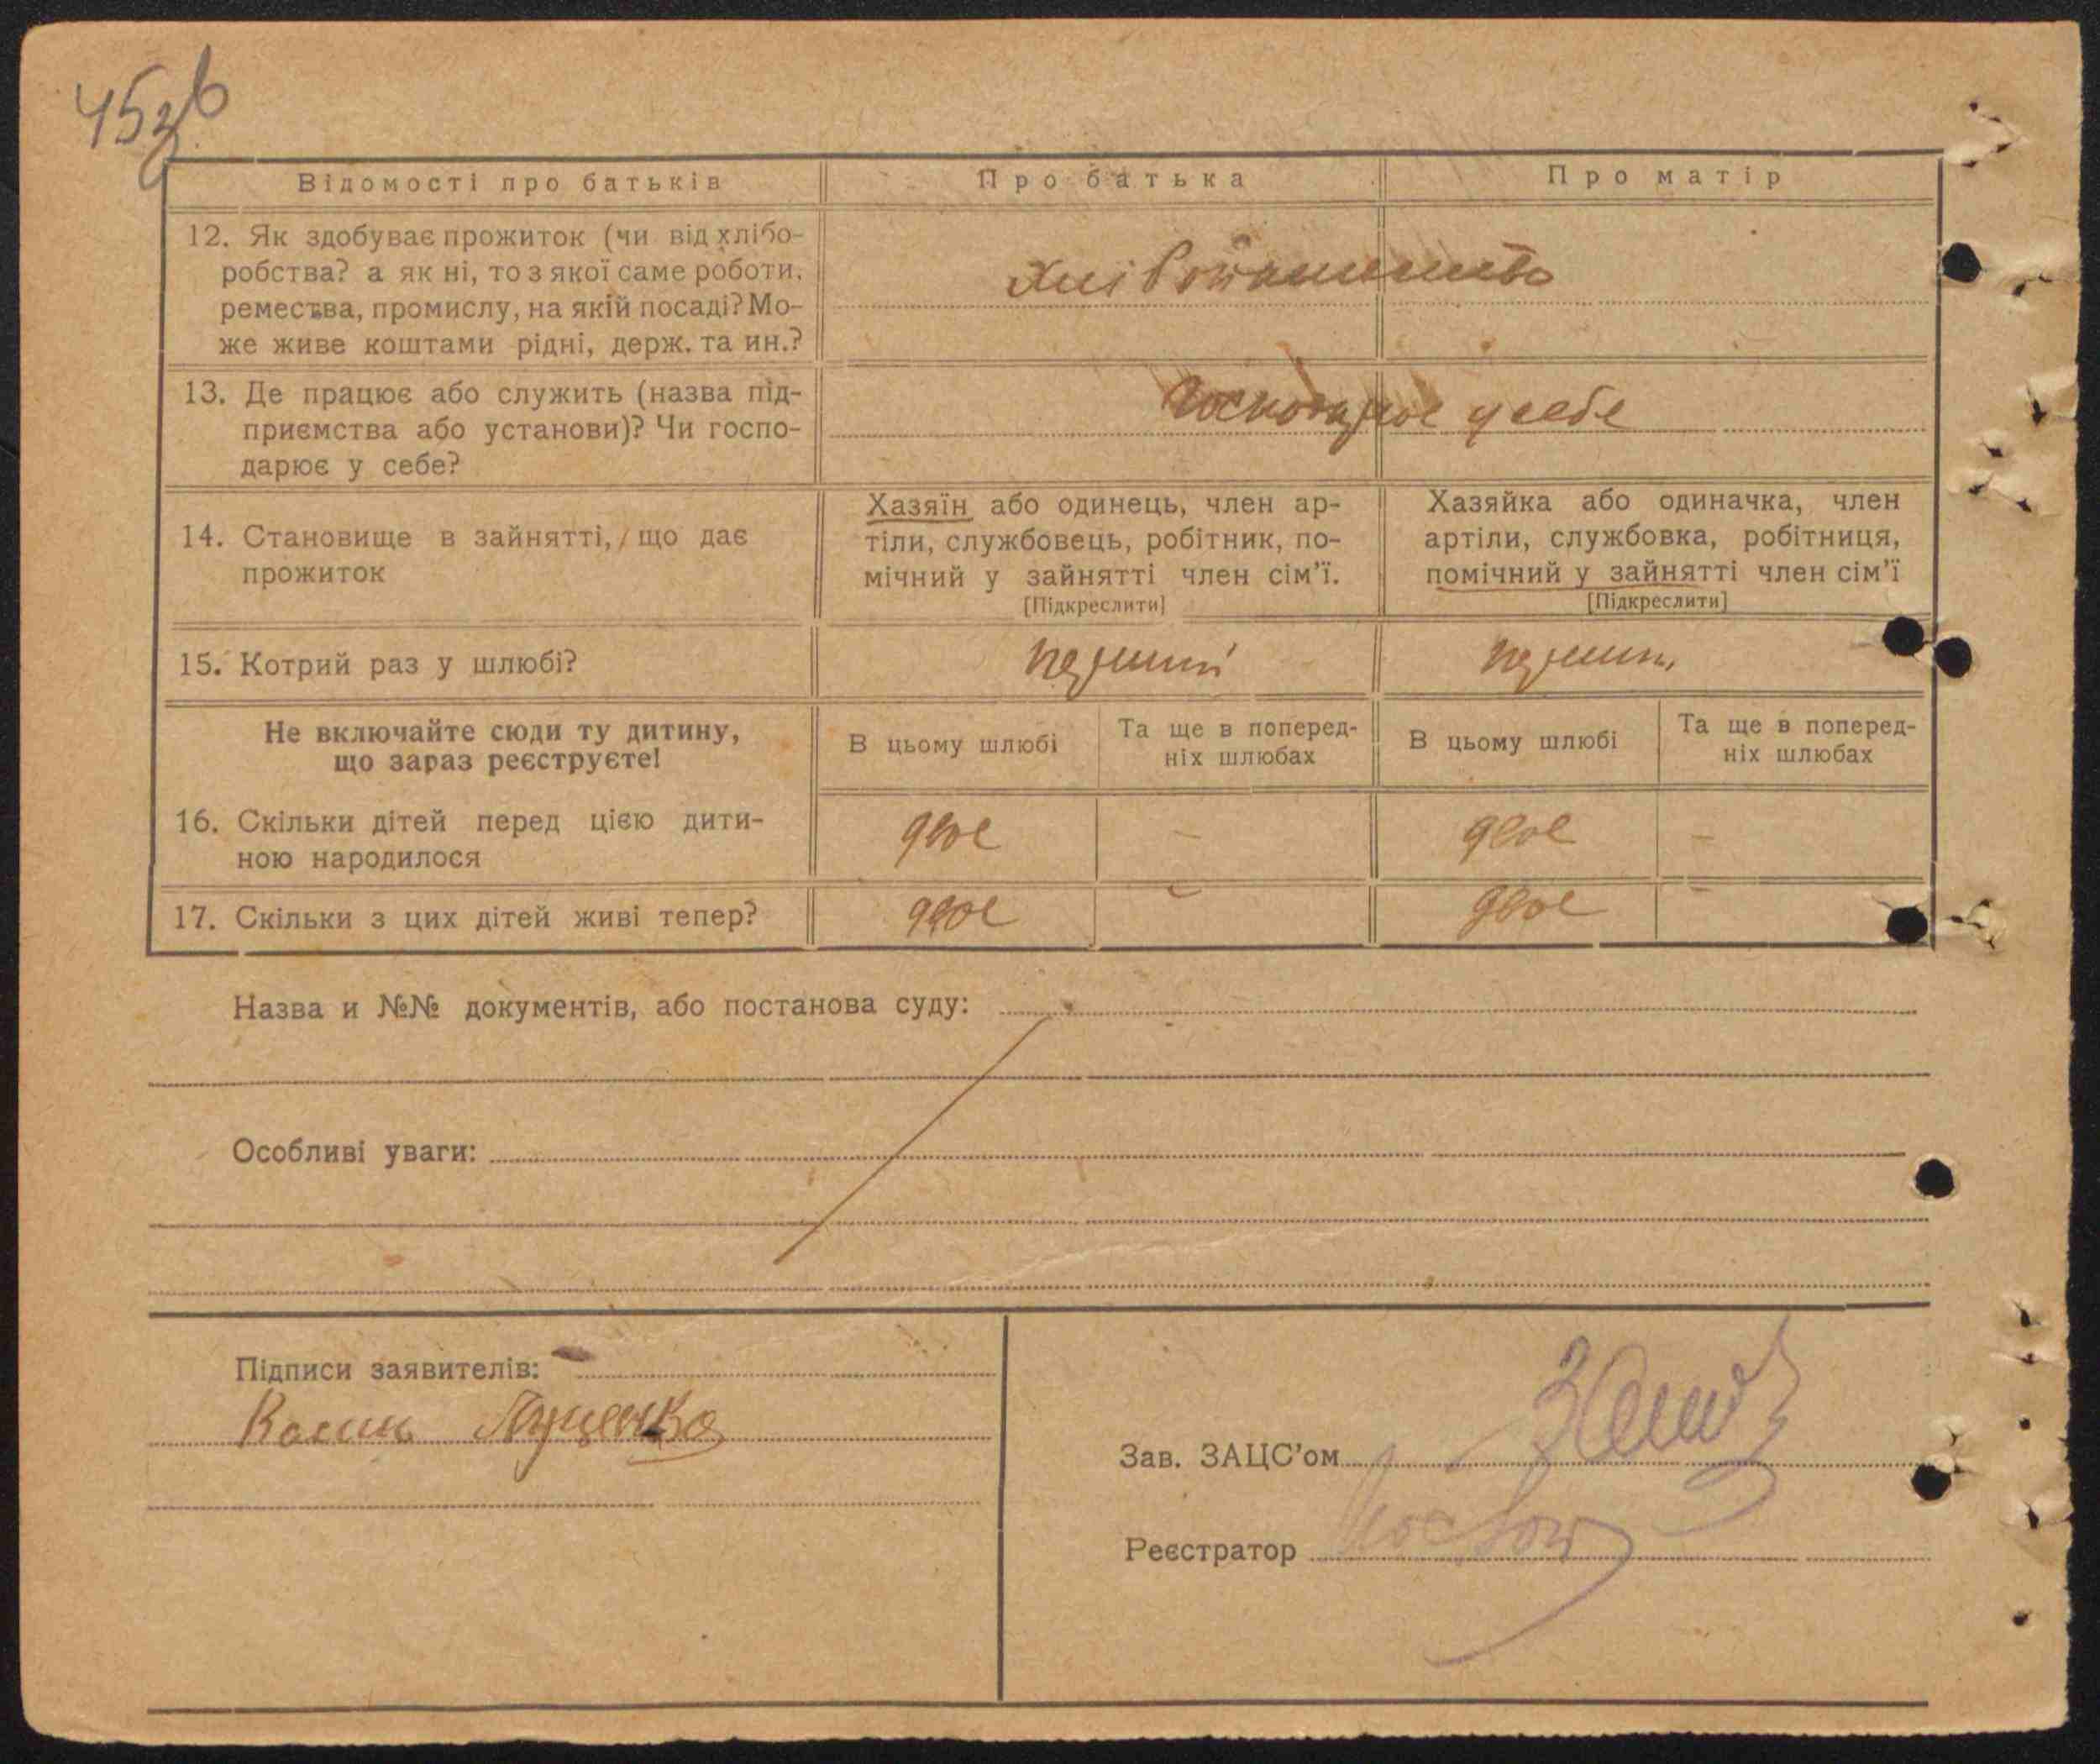 45зв
Відомості про батьків Про батька Про матір
12. Як здобуває прожиток (чи від хлібо-
робства? а як ні, то з якої саме роботи,
ремества, промислу, на якій посаді? Мо-
же живе коштами рідні, держ. та ин.?
13. Де працює або служить (назва під-
приємства або установи)? Чи госпо-
дарює у себе?
господарює у себе
14. Становище в зайнятті, що дає
прожиток
Хазяїн або одинець, член ар-
тіли, службовець, робітник, по-
мічний у зайнятті член сім’ї.
[Підкреслити]
Хазяйка або одиначка, член
артіли, службовка, робітниця,
помічний у зайнятті член сім’ї
[Підкреслити]
15. Котрий раз у шлюбі? перший перший
Не включайте сюди ту дитину,
що зараз реєструєте!
В цьому шлюбі
Та ще в поперед-
ніх шлюбах
В цьому шлюбі
Та ще в поперед-
ніх шлюбах
16. Скільки дітей перед цією дити-
ною народилося
двоє - двоє -
17. Скільки з цих дітей живі тепер? двоє - двоє -
Назва и №№ документів, або постанова суду:
Особливі уваги:
Підписи заявителів:
Луценко
Зав. ЗАЦС’ом
Реєстратор